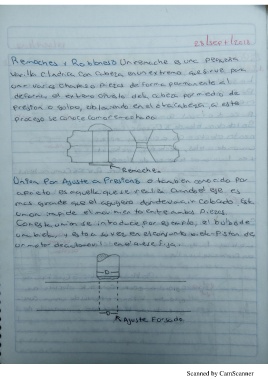 23/sept/2018
Remaches y Roblones Un remache es una pequeña
varilla cilindrica con cabeza en un extremo, que sirve para
unir varias chapas o piezas de forma permanente al
deformar el extremo opuesto de la cabeza por medio de
presion o golpe, en el otra cabeza a este
proceso se conoce como remachado.
Remaches
Union Por Ajuste a Presion o tambien conocido Por
aprieto, es aquella que se realiza cuando el eje es
mas grande que el agujero donde va a ir colocado. Esta
union impide el movimiento entre ambas Piezas.
Con esta union se introduce por ejemplo, el bulon de
una biela, y esta a su vez en el conjunto biela-Piston de
un motor de automovil
D
D
Ajuste Forzado
Scanned by CamScanner